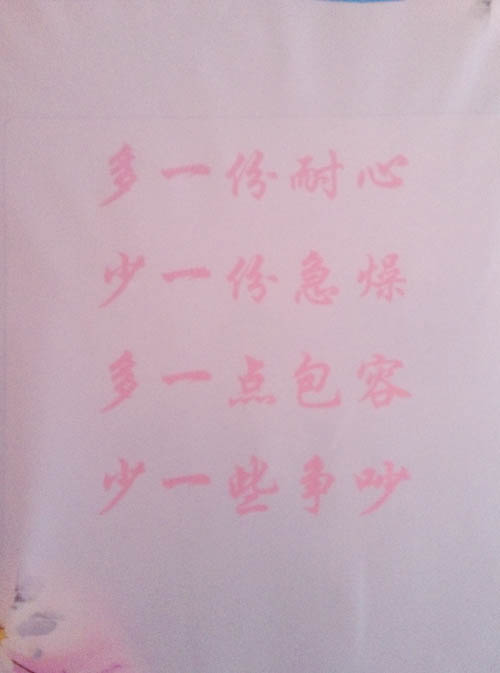 多一份耐心
少一份急燥
多一点包容
少一些争吵